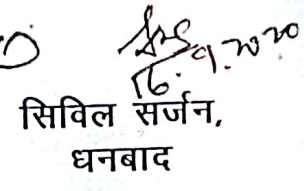 16.9.2020
सिविल सर्जन,
धनबाद